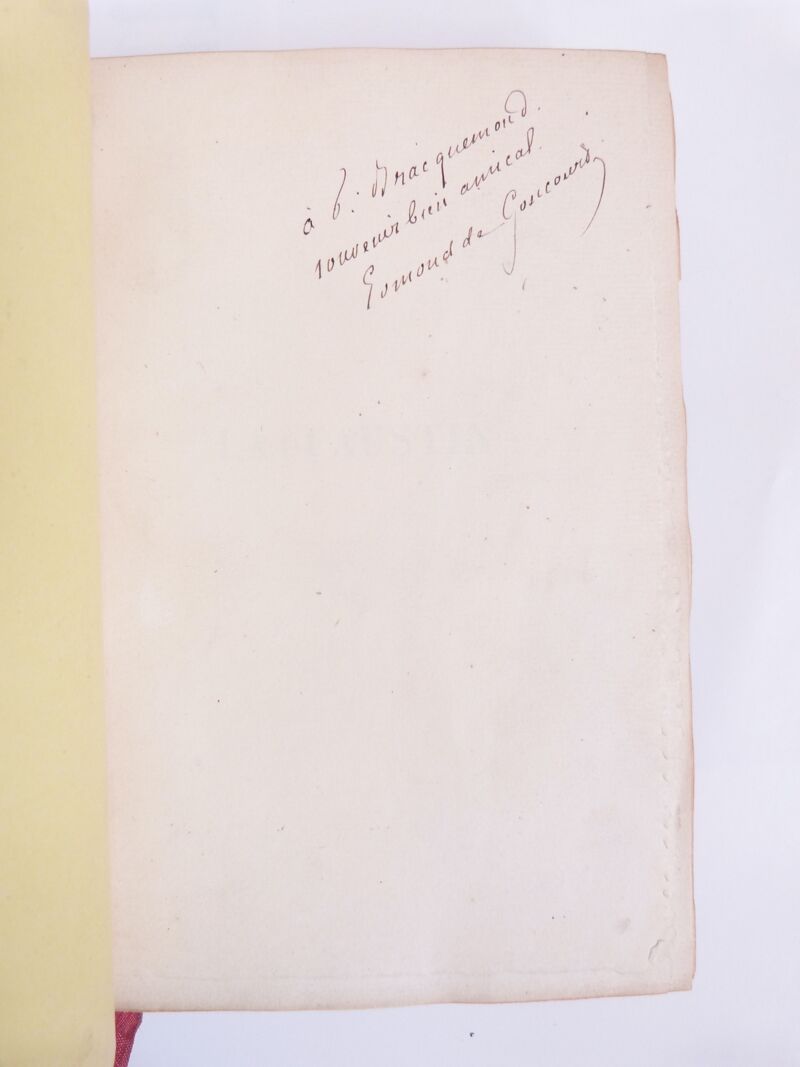 à f. Bracquemond.
souvenir bien amical.
Edmond de Goncourt
LA FAUSTIN